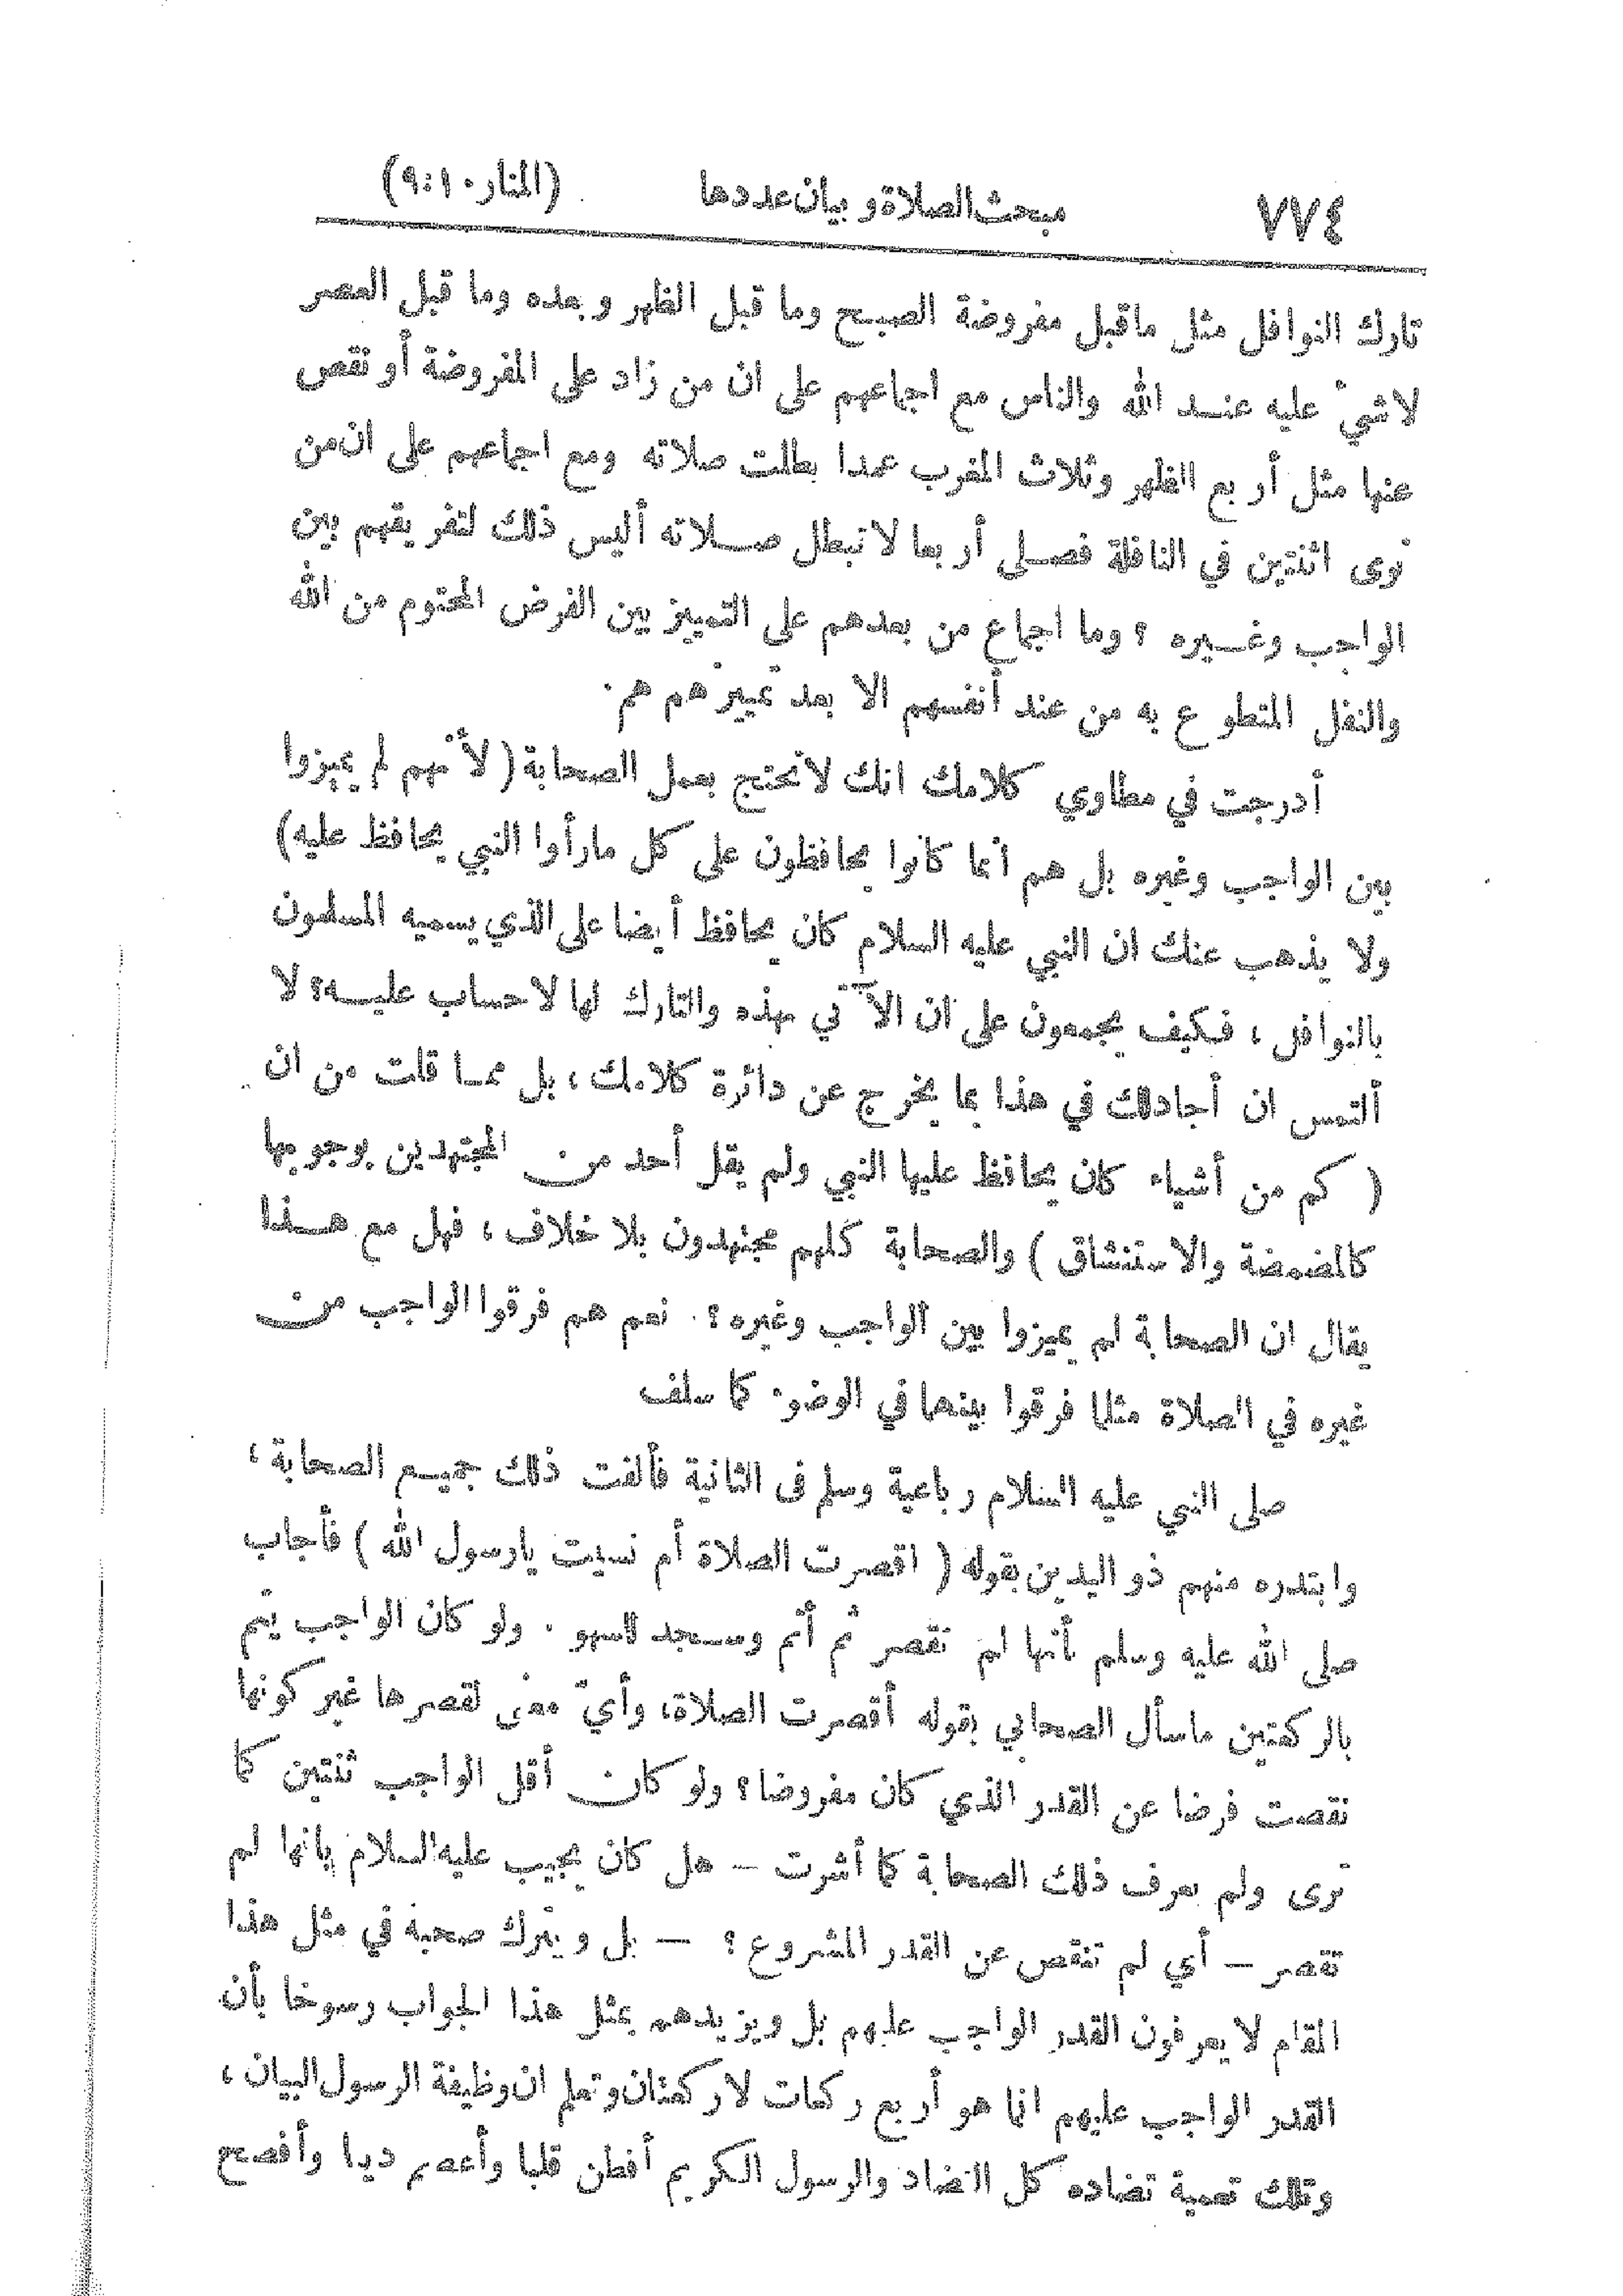 ٧٧٤ مبحث الصلاة و بيان عددها (المنار ١٠:٩)
تارك النوافل مثل ماقبل مفروضة الصبح وما قبل الظهر و بعده وما قبل العصر
لاشيء عليه عند الله والناس مع اجماعهم على ان من زاد على المفروضة أو نقص
عنها مثل أربع الظهر وثلاث المغرب عمدا بطلت صلاته ومع اجماعهم على ان من
نوى اثنتين في النافلة فصلى أربعا لا تبطل صلاته أليس ذلك لتفريقهم بين
الواجب وغيره ؟ وما اجماع من بعدهم على التمييز بين الفرض المحتوم من الله
والنفل المتطوع به من عند أنفسهم الا بعد تمييزهم هم .
أدرجت في مطاوي كلامك انك لا تحتج بعمل الصحابة ( لأنهم لم يميزوا
بين الواجب وغيره بل هم أنما كانوا يحافظون على كل مارأوا النبي يحافظ عليه)
ولا يذهب عنك ان النبي عليه السلام كان يحافظ أيضا على الذي يسميه المسلمون
بالنوافل ، فكيف يجمعون على ان الآتي بهذه والتارك لها لا حساب عليه؟ لا
ألتمس ان أجادلك في هذا بما يخرج عن دائرة كلامك ، بل مما قلت من ان
( كم من أشياء كان يحافظ عليها النبي ولم يقل أحد من المجتهدين بوجوبها
كالمضمضة والاستنشاق ) والصحابة كلهم مجتهدون بلا خلاف ، فهل مع هذا
يقال ان الصحابة لم يميزوا بين الواجب وغيره ؟ . نعم هم فرقوا الواجب من
غيره في الصلاة مثلما فرقوا بينهما في الوضوء كما سلف
صلى النبي عليه السلام رباعية وسلم فى الثانية فألفت ذلك جميع الصحابة ،
وابتدره منهم ذو اليدين بقوله ( اقصرت الصلاة أم نسيت يارسول الله ) فأجاب
صلى الله عليه وسلم بأنها لم تقصر ثم أتم وسجد للسهو . ولو كان الواجب يتم
بالركعتين ماسأل الصحابي بقوله أقصرت الصلاة، وأيّ معنى لقصرها غير كونها
نقصت فرضا عن القدر الذي كان مفروضا؟ ولو كان أقل الواجب ثنتين كما
ترى ولم يعرف ذلك الصحابة كما أشرت – هل كان يجيب عليه السلام بانها لم
تقصر – أي لم تنقص عن القدر المشروع ؟ – بل ويترك صحبه في مثل هذا
المقام لا يعرفون القدر الواجب عليهم بل ويزيدهم بمثل هذا الجواب رسوخا بأن
القدر الواجب عليهم انما هو أربع ركعات لا ركعتان وتعلم ان وظيفة الرسول البيان ،
وتلك تعمية تضاده كل التضاد والرسول الكريم أفطن قلبا وأعصم دينا وأفصح